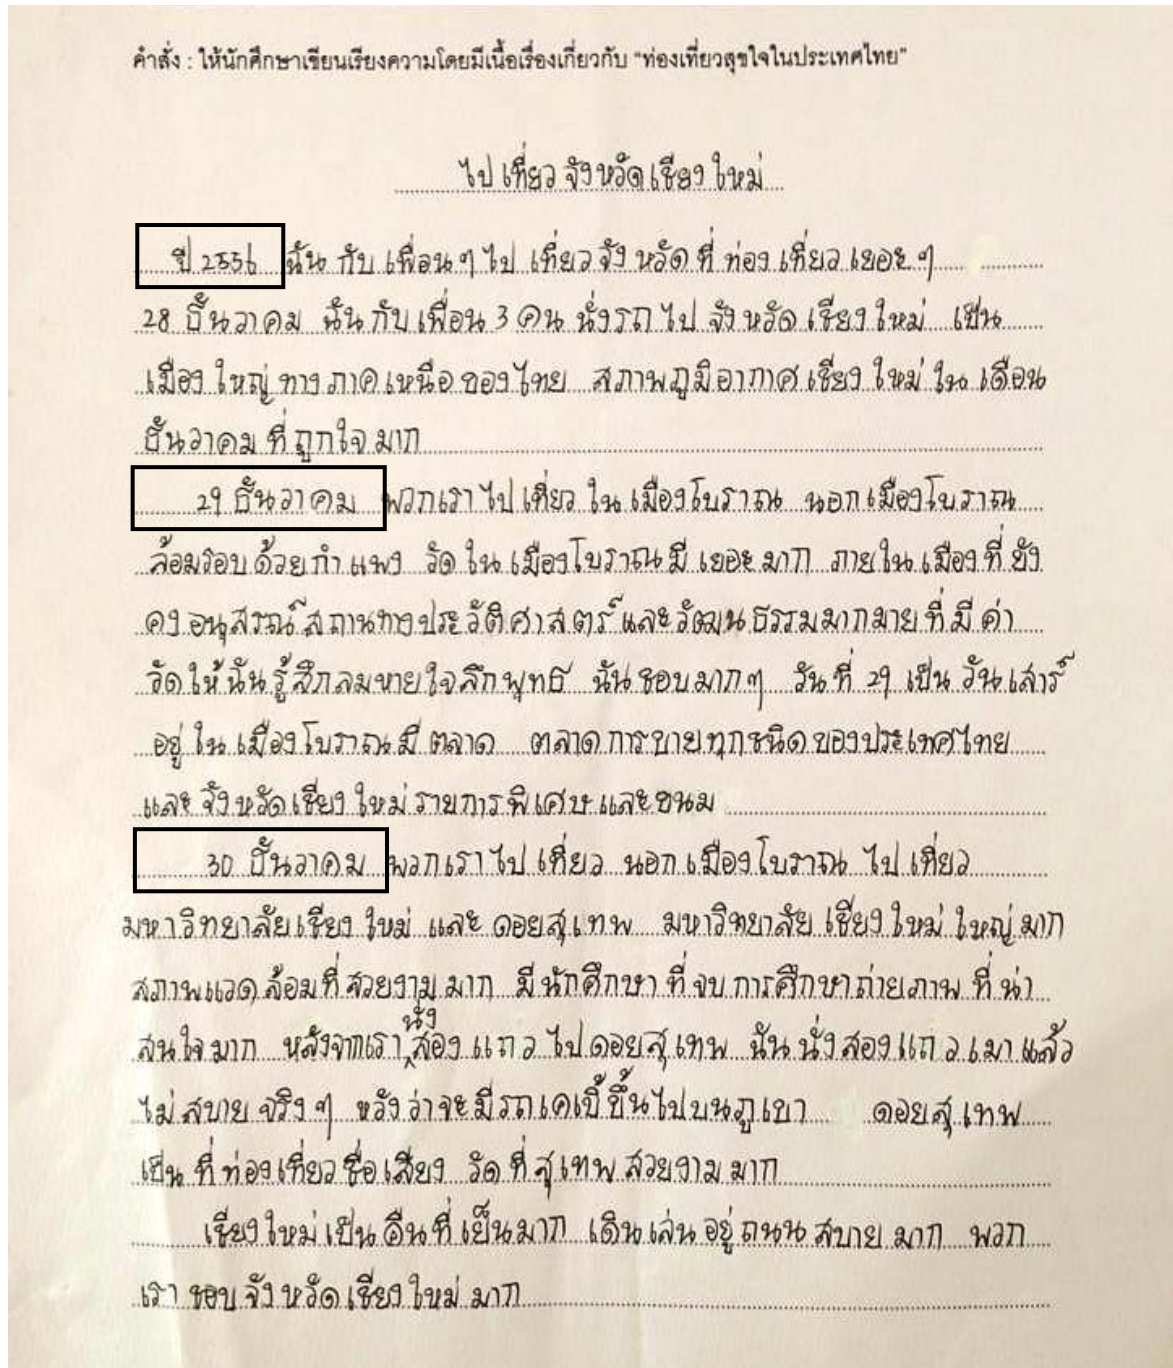 คำสั่ง : ให้นักศึกษาเขียนเรียงความโดยมีเนื้อเรื่องเกี่ยวกับ "ท่องเที่ยวสุขใจในประเทศไทย"
ไปเที่ยวจังหวัดเชียงใหม่
ปี 2556 ฉันกับเพื่อนๆไปเที่ยวจังหวัดที่ท่องเที่ยวเยอะๆ
28 ธันวาคม ฉันกับเพื่อน 3 คน นั่งรถไปจังหวัดเชียงใหม่ เป็น
เมืองใหญ่ทางภาคเหนือของไทย สภาพภูมิอากาศเชียงใหม่ในเดือน
ธันวาคมที่ถูกใจมาก
29 ธันวาคม พวกเราไปเที่ยวในเมืองโบราณ นอกเมืองโบราณ
ล้อมรอบด้วยกำแพง วัดในเมืองโบราณมีเยอะมาก ภายในเมืองที่ยัง
คงอนุสรณ์สถานทางประวัติศาสตร์และวัฒนธรรมมากมายที่มีค่า
วัดให้ฉันรู้สึกลมหายใจลึกพุทธ ฉันชอบมากๆ วันที่ 29 เป็นวันเสาร์
อยู่ในเมืองโบราณมีตลาด ตลาดการขายทุกชนิดของประเทศไทย
และจังหวัดเชียงใหม่รายการพิเศษและขนม
30 ธันวาคม พวกเราไปเที่ยวนอกเมืองโบราณ ไปเที่ยว
มหาวิทยาลัยเชียงใหม่ และดอยสุเทพ มหาวิทยาลัยเชียงใหม่ใหญ่มาก
สภาพแวดล้อมที่สวยงามมาก มีนักศึกษาที่จบการศึกษาถ่ายภาพที่น่า
สนใจมาก หลังจากเรานั่งสองแถวไปดอยสุเทพ ฉันนั่งสองแถวเมาแล้ว
ไม่สบายจริงๆ หวังว่าจะมีรถเคเบี้ขึ้นไปบนภูเขา ดอยสุเทพ
เป็นที่ท่องเที่ยวชื่อเสียง วัดที่สุเทพสวยงามมาก
เชียงใหม่เป็นคืนที่เย็นมาก เดินเล่นอยู่ถนนสบายมาก พวก
เราชอบจังหวัดเชียงใหม่มาก